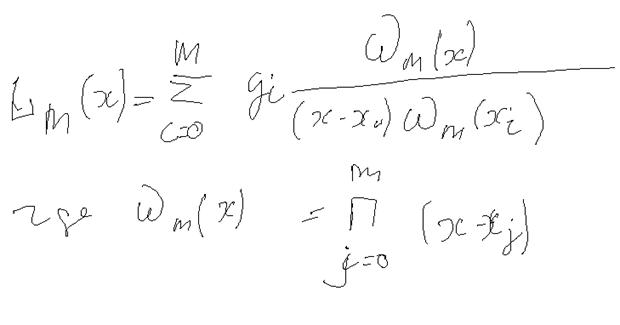 L_m(x) = \sum_{i=0}^{m} g_i \frac{ω_m(x)}{(x-x_i) ω_m(x_i)}
где ω_m(x) = \prod_{j=0}^{m} (x-x_j)